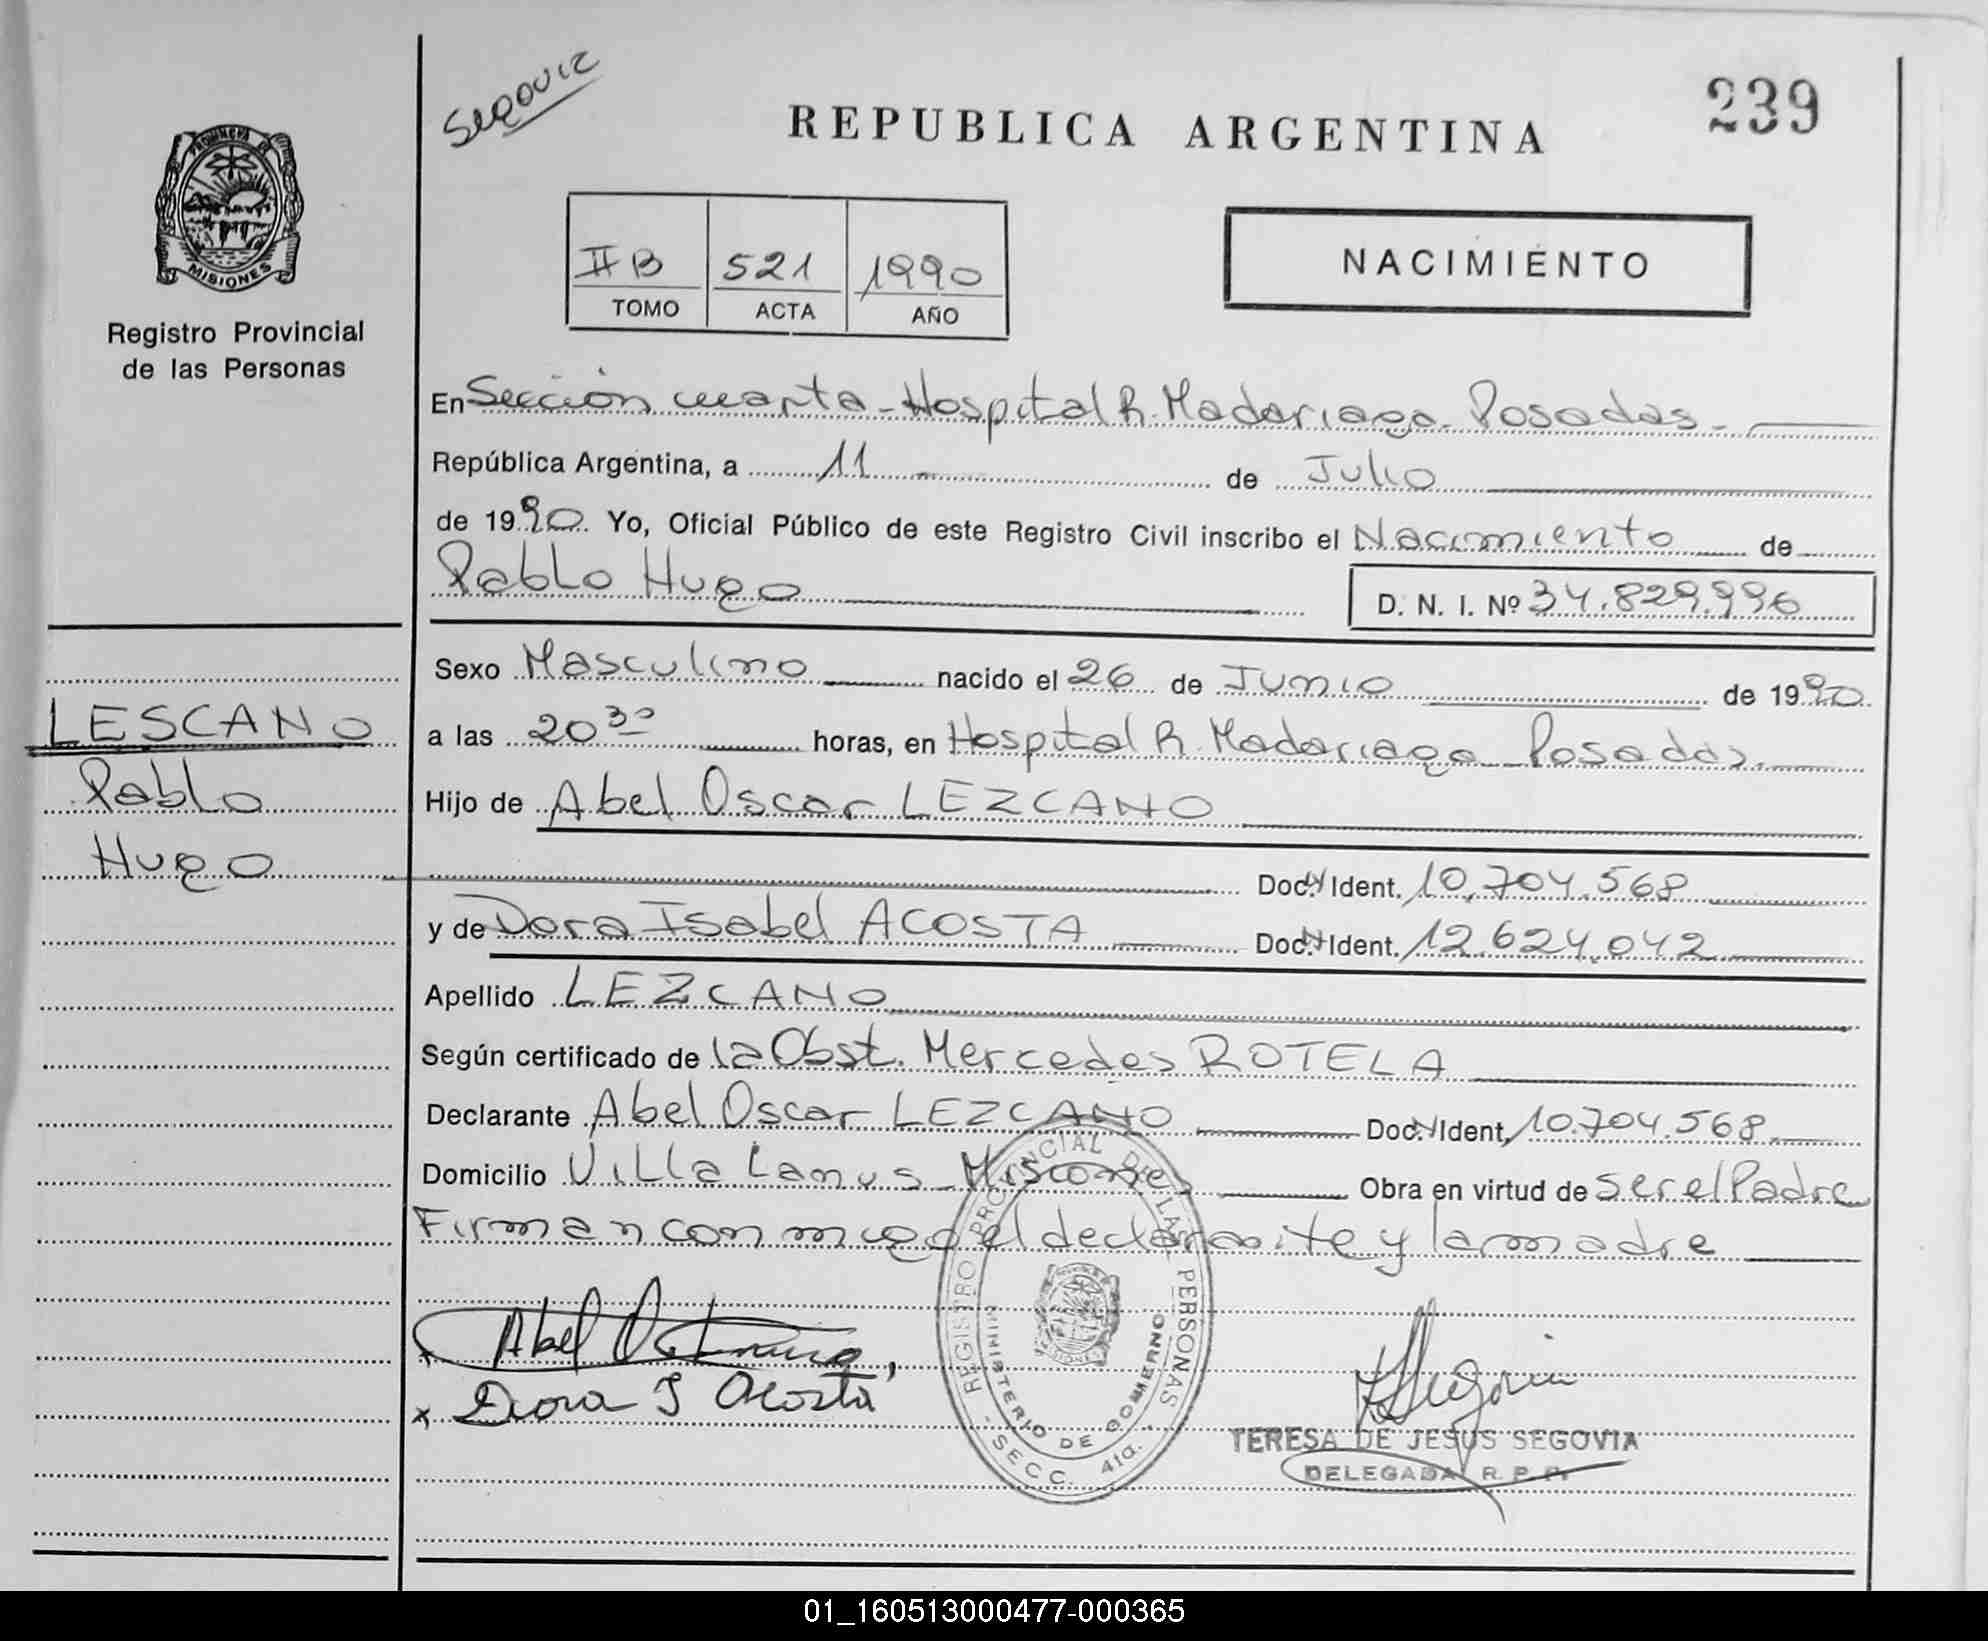 Segovia
REPUBLICA ARGENTINA
239
PROVINCIA DE
MISIONES
Registro Provincial
de las Personas
II B 521 1990
TOMO ACTA AÑO
NACIMIENTO
En Sección cuarta - Hospital R. Madariaga - Posadas -
República Argentina, a 11 de Julio
de 1990 Yo, Oficial Público de este Registro Civil inscribo el Nacimiento de
Pablo Hugo
D. N. I. Nº 34.829.996
Sexo Masculino nacido el 26 de Junio de 1990
a las 20 30 horas, en Hospital R. Madariaga - Posadas.
Hijo de Abel Oscar LEZCANO
Doc. Ident. 10.704.568
y de Dora Isabel ACOSTA Doc. Ident. 12.624.042
Apellido LEZCANO
Según certificado de la Obst. Mercedes ROTELA
Declarante Abel Oscar LEZCANO Doc. Ident. 10.704.568
Domicilio Villa Lanus - Misiones Obra en virtud de ser el Padre
Firman conmigo el declarante y la madre
LESCANO
Pablo
Hugo
x Abel
x Dora I Acosta
REGISTRO PROVINCIAL DE LAS PERSONAS
MINISTERIO DE GOBIERNO
- SECC. 4ta. -
MISIONES
Segovia
TERESA DE JESUS SEGOVIA
DELEGADA R. P. P.
01_160513000477-000365